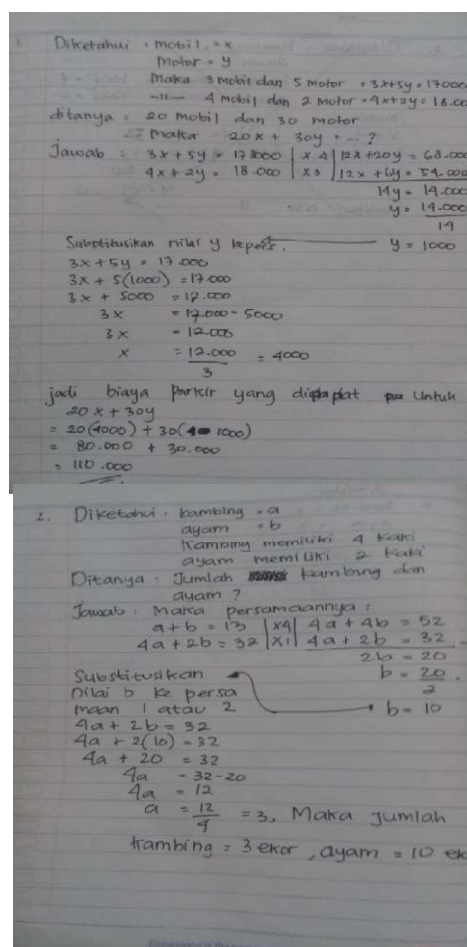 1. Diketahui : mobil = x
Motor = y
Maka 3 mobil dan 5 motor = 3x+5y = 17000
-11- 4 mobil dan 2 motor = 4x+2y = 18.00
ditanya : 20 mobil dan 30 motor
maka 20x + 30y = ... ?
Jawab : 3x + 5y = 17.000 | x 4 | 12x +20y = 68.000
4x + 2y = 18.000 | x 3 | 12x + 6y = 54.000
14y = 14.000
y = 14.000
14
Substitusikan nilai y ke pers. y = 1000
3x + 5y = 17.000
3x + 5(1000) = 17.000
3x + 5000 = 17.000
3x = 17.000 - 5000
3x = 12.000
x = 12.000 = 4000
3
jadi biaya parkir yang didapat untuk
20x + 30y
= 20(4000) + 30(1000)
= 80.000 + 30.000
= 110.000
2. Diketahui : kambing = a
ayam = b
kambing memiliki 4 kaki
ayam memiliki 2 kaki
Ditanya : Jumlah kambing dan
ayam ?
Jawab : Maka persamaannya :
a + b = 13 |x4| 4a + 4b = 52
4a + 2b = 32 |x1| 4a + 2b = 32 -
2b = 20
Substitusikan b = 20
2
nilai b ke persa
maan 1 atau 2 b = 10
4a + 2b = 32
4a + 2(10) = 32
4a + 20 = 32
4a = 32-20
4a = 12
a = 12 = 3, Maka Jumlah
4
kambing = 3 ekor, ayam = 10 ek